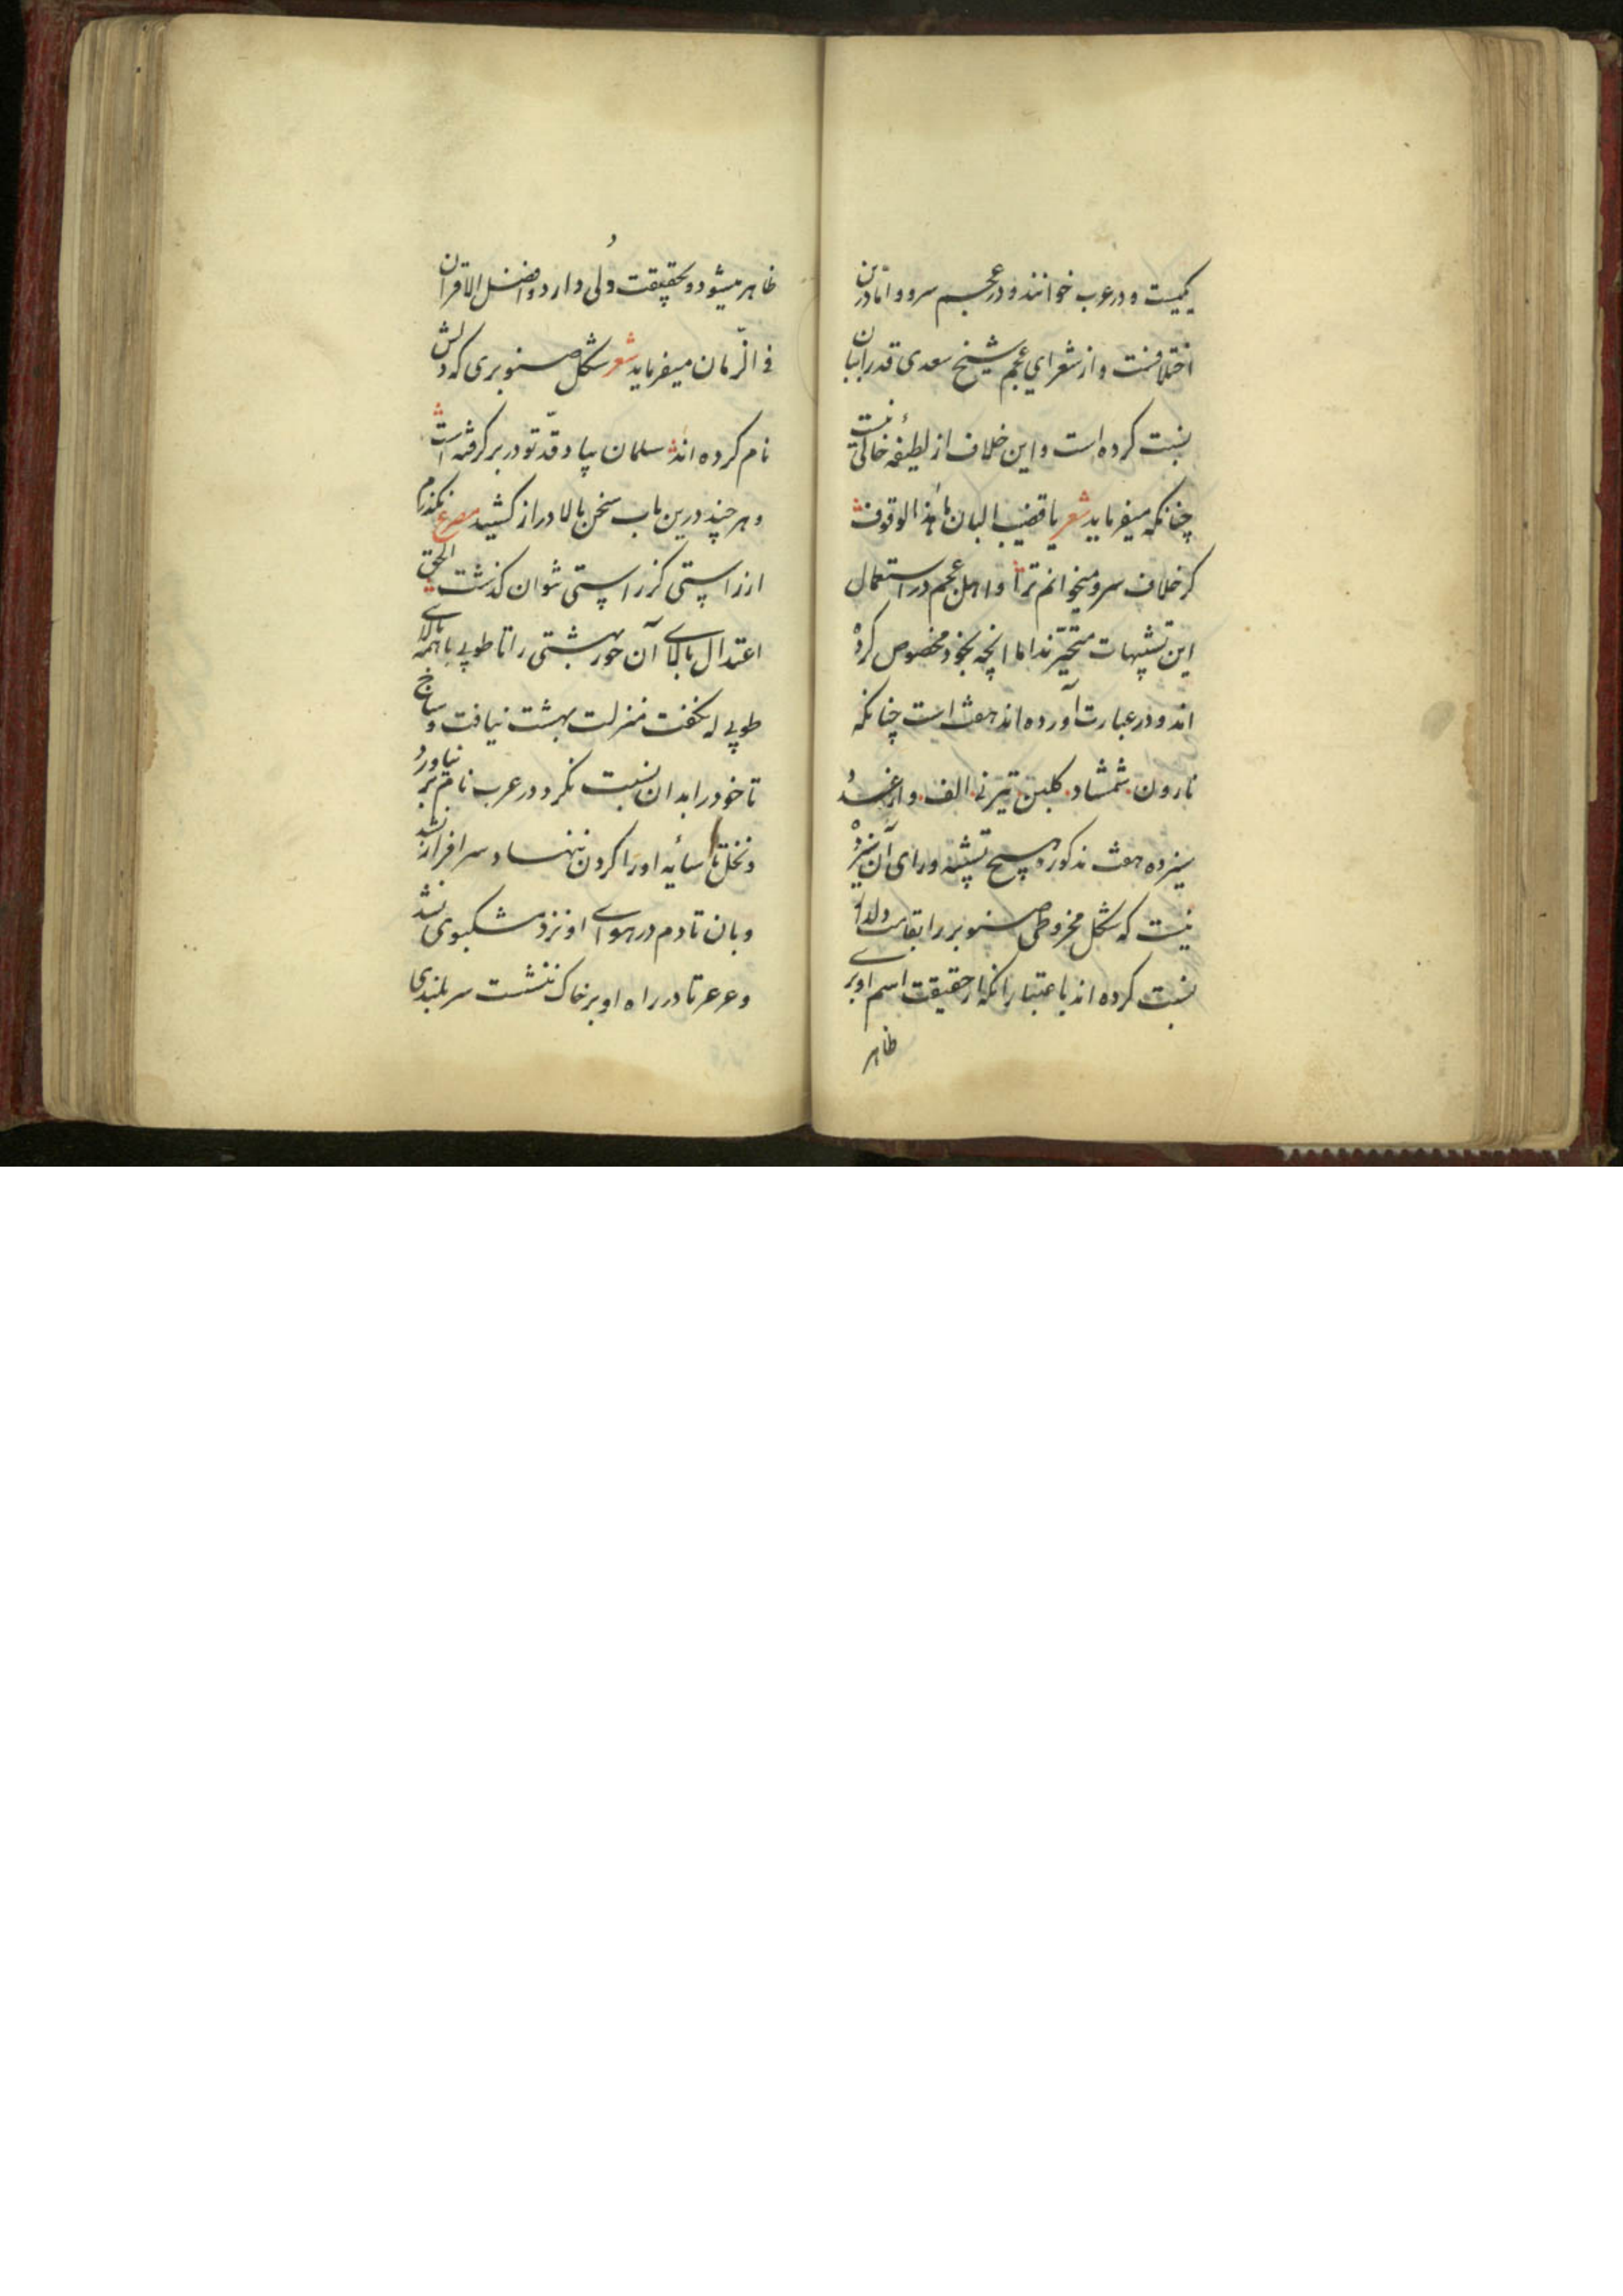 یکیست و در عرب خوانند و در عجم سرو و اما درین
اختلافست و از شعرای عجم شیخ سعدی قد را ببان
نسبت کرده است و این خلاف از لطیفهٔ خالی نیست
چنانکه میفرماید شعر یا قضیب البان ما هذا الوقوف
کر خلاف سرو میخوانم ترا و اهل عجم در استعمال
این تشبیهات متحیّرند اما انچه بخود مخصوص کرده
اند و در عبارت آورده اند هفت است چنانکه
نارون شمشاد کلبن تیر نی الف و از غیر
سیزده هفت مذکور و هیچ تشبیه ورای آن سیزده
نیست که شکل مخروطی صنوبر را بقامت دلدار
نسبت کرده اند باعتبار انکه از حقیقت اسم او بر
ظاهر
ظاهر میشود و بحقیقت دلی دارد و افضل الاقران
فی الزّمان میفرماید شعر شکل صنوبری که دلش
نام کرده اند سلمان بیاد قدّ تو در بر کرفته است
و هر چند درین باب سخن بالا دراز کشید مصرع نکذرم
از راستی کز راستی نتوان کذشت الحق
اعتدال بالای آن حور بهشتی را تا طوبی با همه بالای
طوبی له نکفت منزلت بهشت نیافت و ساج
تا خود را بدان نسبت نکرد در عرب نام بر نیاورد
و نخل تا سایه او را کردن ننهاد سر افراز نشد
و بان تا دم در هوای او نزد مشکبوی نشد
و عرعر تا در راه او بر خاک ننشست سر بلندی